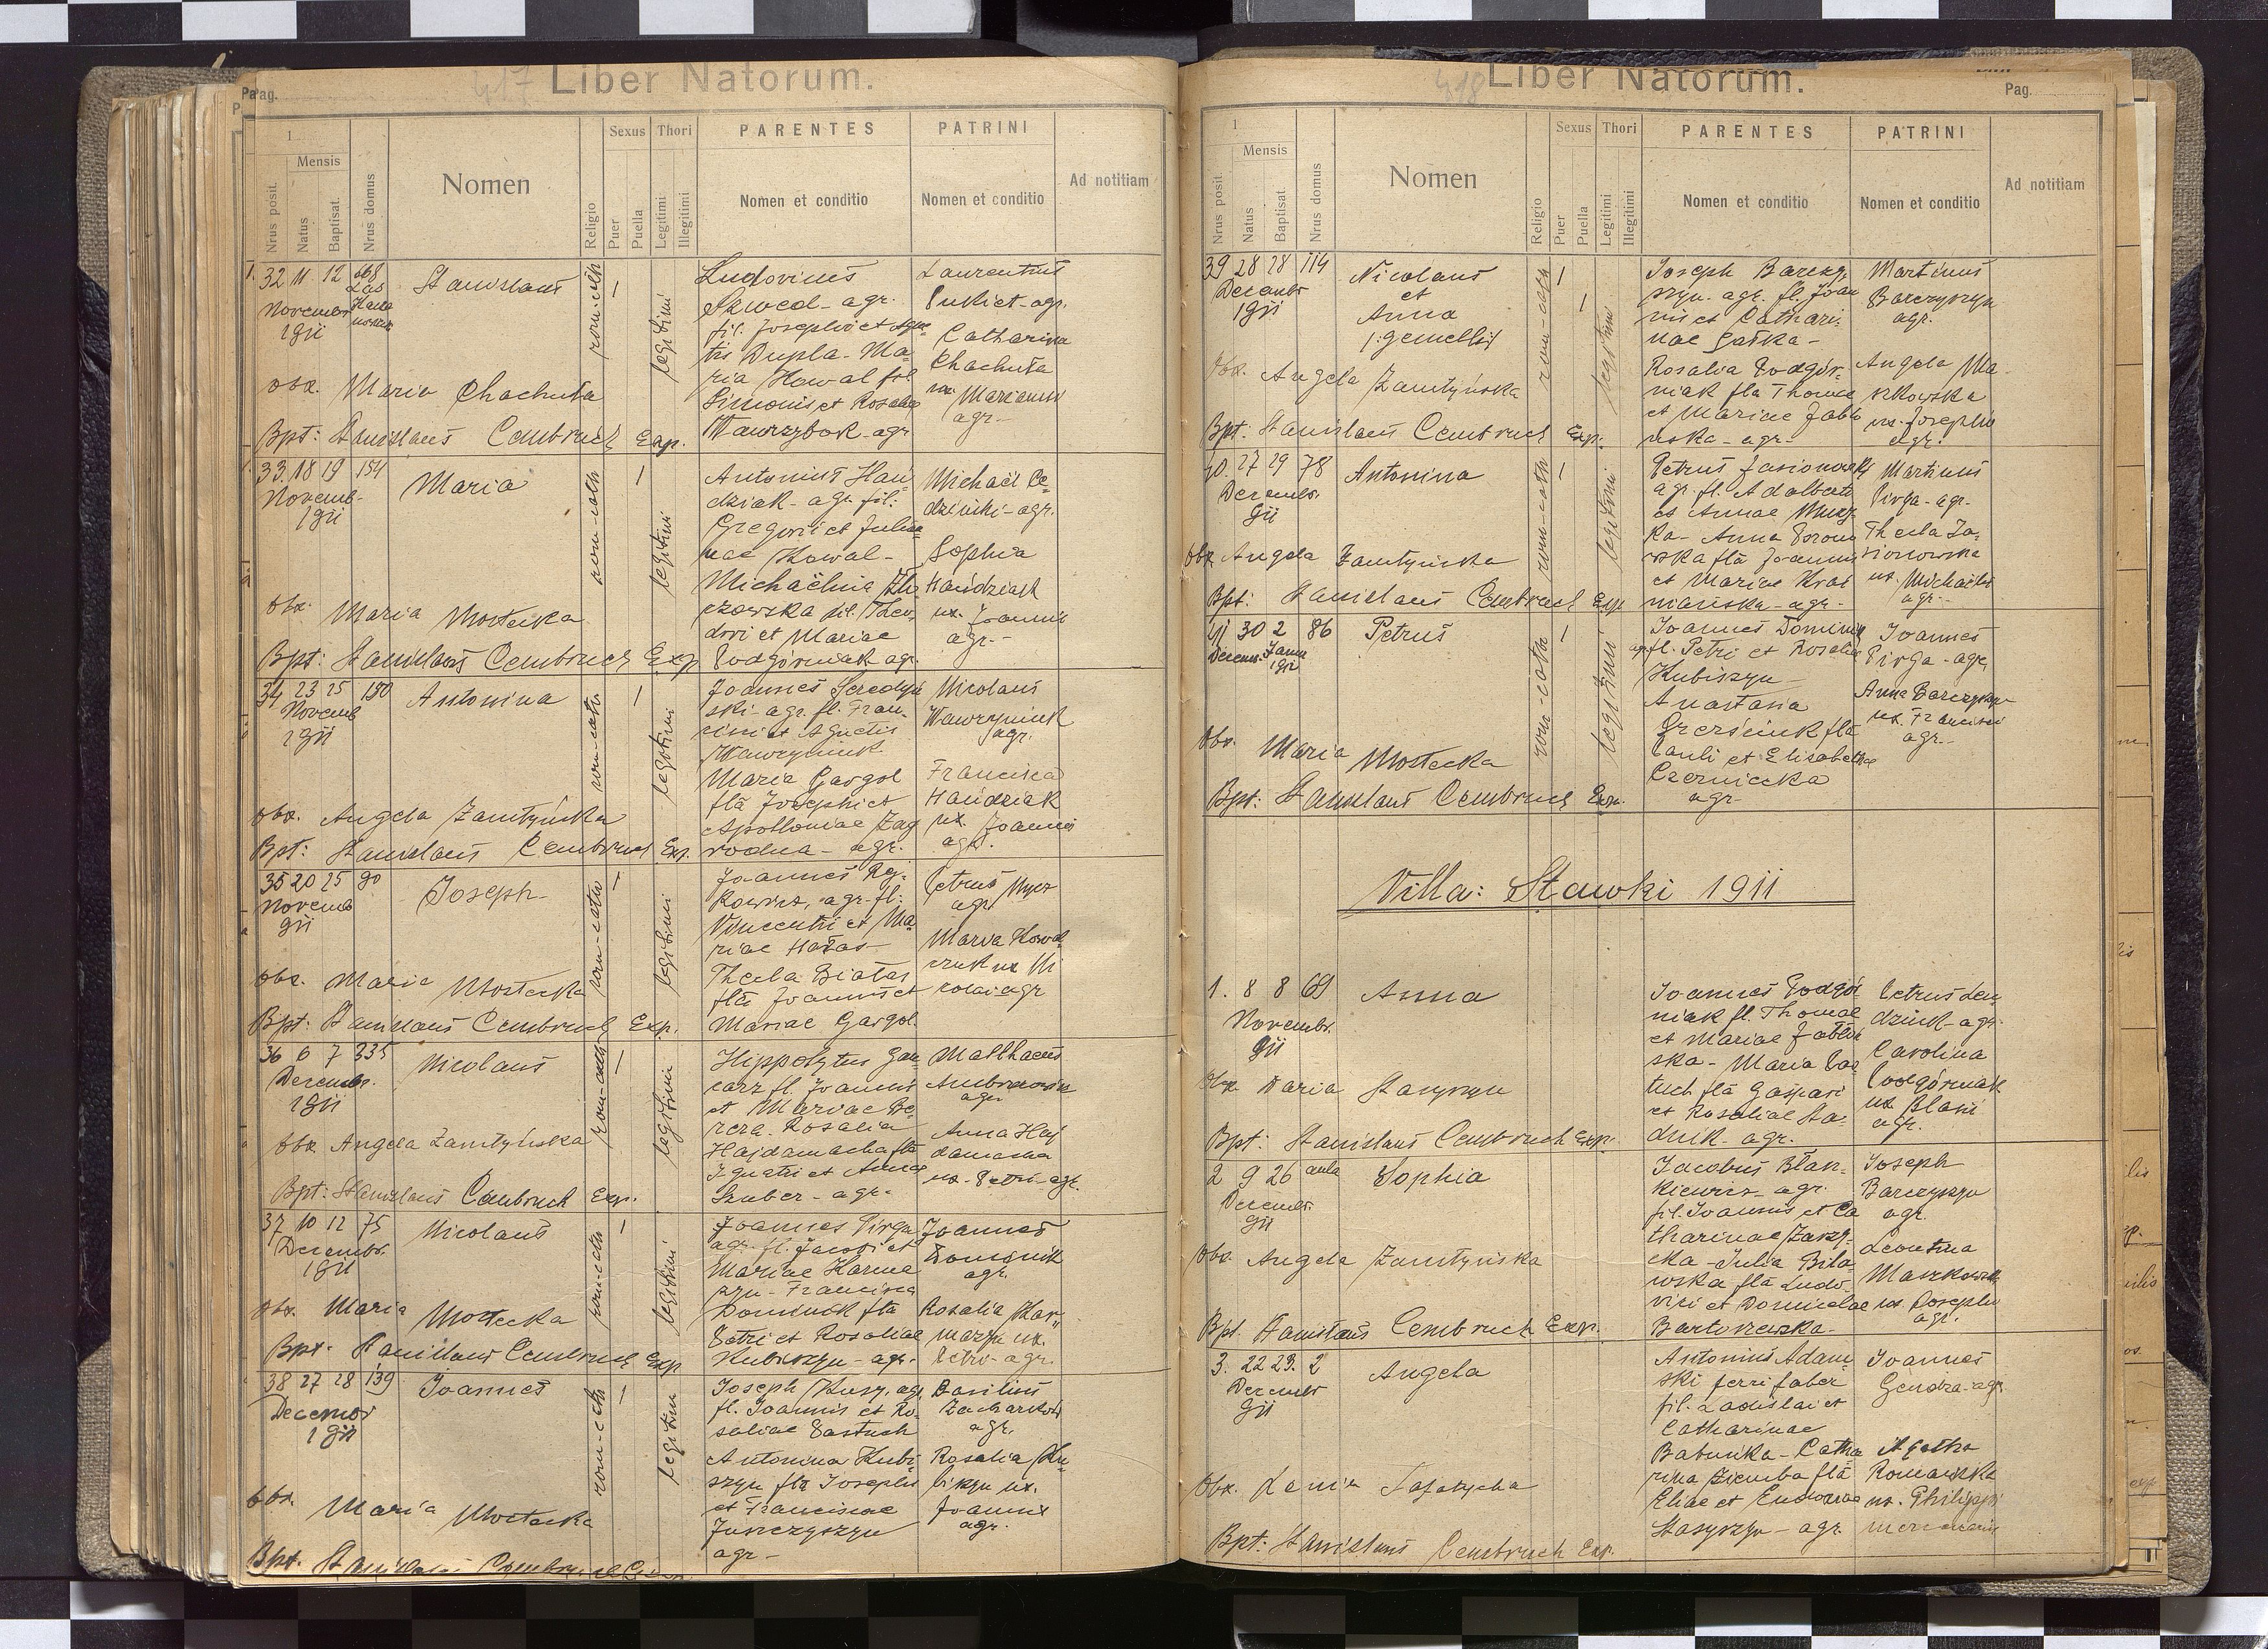 417 Liber Natorum.
Pag.
1
Mensis
Nrus posit.
Natus
Baptisat.
Nrus domus
Nomen
Religio
Sexus
Puer
Puella
Thori
Legitimi
Illegitimi
PARENTES
Nomen et conditio
PATRINI
Nomen et conditio
Ad notitiam
32 11 12 668
Novembr
1911
Stanislaus
rom-cath
legitimi
Ludovicus
Szwed - agr.
fil. Josephi et Agne-
tis Dupla - Ma-
ria Kowal fil.
Simonis et Rosaliae
Wawrzybok - agr
Laurentius
agr.
Catharina
Chachuta
ux. Mariani
agr -
obx. Maria Chachuta
Bpt: Stanislaus Cembruch Exp.
33 18 19 154
Novemb-
1911
Maria
rom-cath
legitimi
Antonius Hań-
dziak - agr. fil.
Gregorii et Julian-
nae Kowal -
Michaëlina
fil. Theo-
dori et Mariae
Podgórniak agr.
Michaël
agr.
Sophia
Hańdziak
ux. Joannis
agr. -
obx. Maria Mostecka
Bpt: Stanislaus Cembruch Exp
34 23 25 130
Novemb
1911
Antonina
rom-cath
legitimi
Joannes Seredyń-
ski - agr. fl. Fran-
cisci et Agnetis
Wawryniuk
Maria Gargol
fla Josephi et
Apolloniae Zag
rodna - agr.
Nicolaus
Wawryniuk
agr.
Francisca
Hańdziak
ux. Joannis
agr.
obx. Angela Zamtyńska
Bpt: Stanislaus Cembruch Exp.
35 20 25 90
Novemb
911
Joseph
rom-cath
legitimi
Joannes
agr. fl.
Vincentii et Ma-
riae Hałas -
Thecla Białas
fla Joannis et
Mariae Gargol.
Petrus
agr
Maria Kowal-
czuk ux Ni
colai agr
obx. Maria Mostecka
Bpt: Stanislaus Cembruch Exp.
36 6 7 335
Decembr.
1911
Nicolaus
rom-cath
legitimi
Hippolytus Gan-
carz fl. Joannis
et Mariae Be-
reza. Rosalia
Hajdamacha fla
Ignatii et Annae
Szuber - agr.
Matthaeus
agr
Anna Haj
damacha
ux. Petri - agr.
obx. Angela Zamtyńska
Bpt: Stanislaus Cembruch Exp.
37 10 12 75
Decembr.
1911
Nicolaus
rom-cath
legitimi
Joannes Pirga
agr. fl. Jacobi et
Mariae Harma
szyn - Francisca
Dominik fla
Petri et Rosaliae
Kubiszyn - agr.
Joannes
Dominik
agr.
Rosalia Har-
maszyn ux.
Petri - agr.
obx. Maria Mostecka
Bpt. Stanislaus Cembruch Exp
38 27 28 139
Decembr
1911
Joannes
rom-cath
legitimi
Joseph agr.
fl. Joannis et Ro-
saliae Pastuch
Antonina Kubi-
szyn fla Josephi
et Franciscae
Juszczyszyn
agr -
Basilius
Zacharków
agr.
Rosalia Ku-
biszyn ux.
Joannis
agr.
obx. Maria Mostecka
Bpt. Stanislaus Cembruch Exp.
418 Liber Natorum.
Pag.
1
Mensis
Nrus posit
Natus
Baptisat
Nrus domus
Nomen
Religio
Sexus
Puer
Puella
Thori
Legitimi
Illegitimi
PARENTES
Nomen et conditio
PATRINI
Nomen et conditio
Ad notitiam
39 28 28 114
Decembr
1911
Nicolaus
et
Anna
/:gemelli:/
rom-cath
legitimi
Joseph Barczy-
szyn. agr. fl. Joan
nis et Cathari-
nae Gałka -
Rosalia Podgór-
niak fla Thomae
et Mariae Jabło
nska - agr -
Martinus
Barczyszyn
agr.
Angela Ma-
szkowska
ux. Josephi
agr.
Obx. Angela Zamtyńska
Bpt: Stanislaus Cembruch Exp.
40. 27 29 78
Decembr.
911
Antonina
rom-cath
legitimi
Petrus Jasionowski
agr. fl. Adalberti
et Annae
fla Joannis
et Mariae
agr -
Martinus
Pirga - agr.
Thecla Ja-
sionowska
ux. Michaëlis
agr -
Obx Angela Zamtyńska
Bpt: Stanislaus Cembruch Exp
41 30 2 86
Decemb. Janu
1912
Petrus
rom-cath
legitimi
Joannes Dominik
agr fl. Petri et Rosaliae
Kubiszyn -
Anastasia
fla
Pauli et Elisabethae
Czerniecka
agr -
Joannes
Pirga - agr.
Anna Barczyszyn
ux. Francisci
agr -
Obx. Maria Mostecka
Bpt: Stanislaus Cembruch Exp.
Villa: Stawki 1911
1. 8 8 69
Novembr.
911
Anna
Joannes Podgór-
niak fl. Thomae
et Mariae Jabłoń
ska - Maria Pas-
tuch fla Gaspari
et Rosaliae Sta-
dnik - agr.
Petrus Len-
dziuk - agr.
Carolina
Podgórniak
ux. Blasii
agr.
Obx Maria Stasyszyn
Bpt: Stanislaus Cembruch Exp.
2 9 26 aula
Decembr.
911
Sophia
Jacobus Błaż-
kiewicz - agr.
fil. Joannis et Ca
tharinae Zarzy-
cka - Julia Bila-
wska fla Ludo-
vici et Domicelae
Bartoszewska -
Joseph
Barczyszyn
agr.
Leontina
Maszkowska
ux. Josephi
agr.
Obx. Angela Zamtyńska
Bpt. Stanislaus Cembruch Exp.
3. 22 23. 2
Decembr
911
Angela
Antonius Adam-
ski ferri faber
fil. Ladislai et
Catharinae
Babińska - Catha
rina Ziemba fla
Eliae et Eudoxiae
Stasyszyn - agr.
Joannes
Gendra - agr
Agatha
Romańska
ux. Philippi
mercenarii
Obx. Xenia
Bpt: Stanislaus Cembruch Exp.